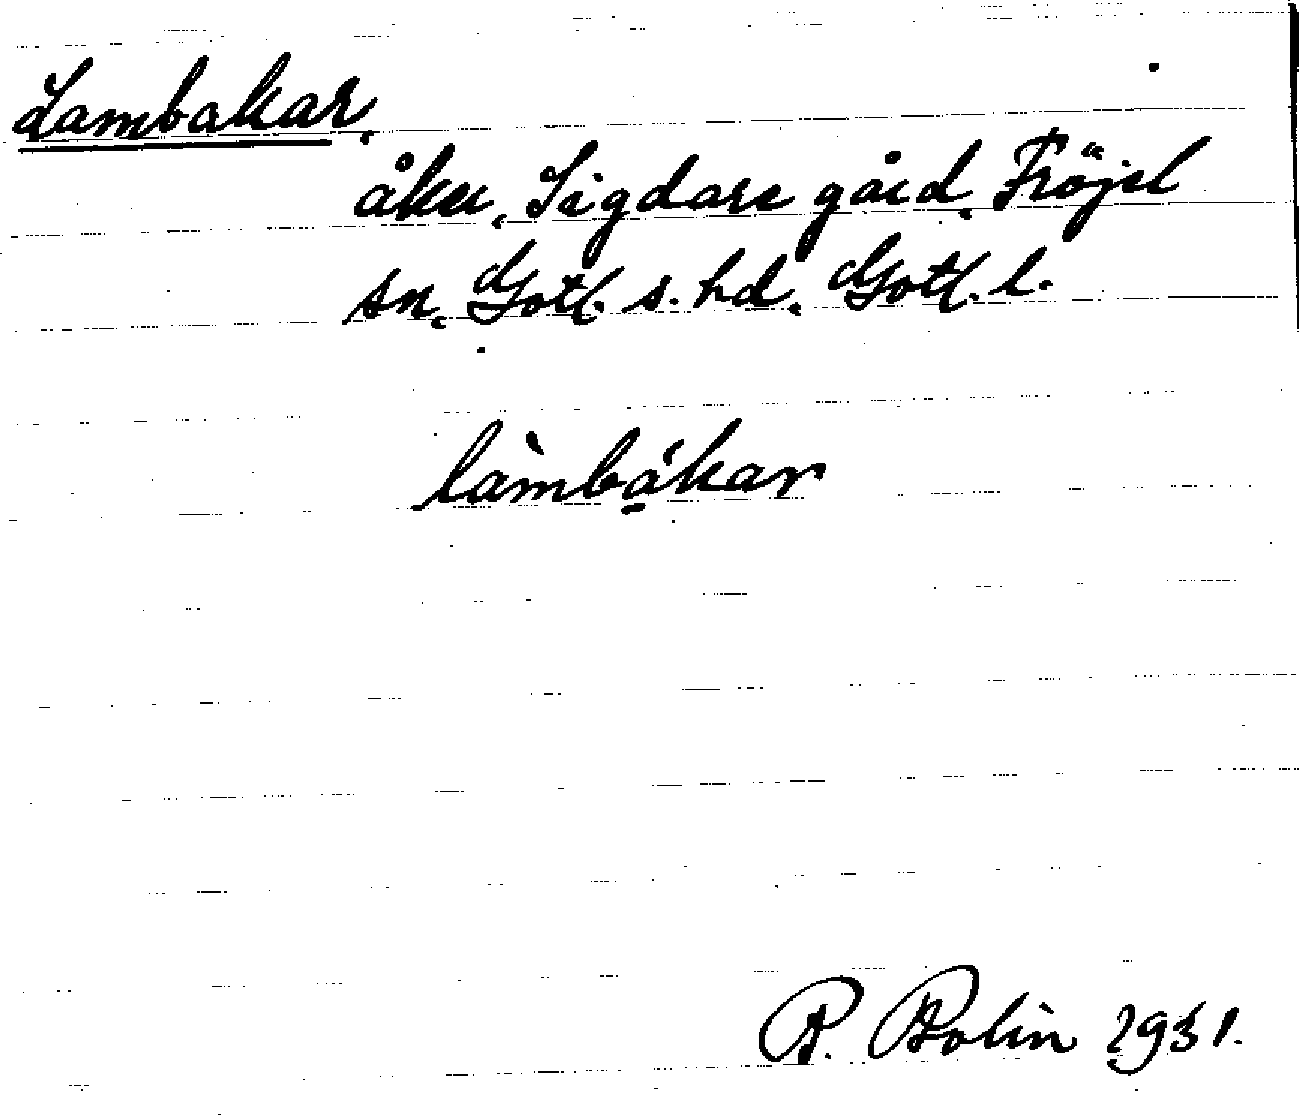 Lambakar,
åker, Sigdare gård, Fröjel
sn. Gotl. s. hd. Gotl. l.
làmbákar
B. Bolin 1931.